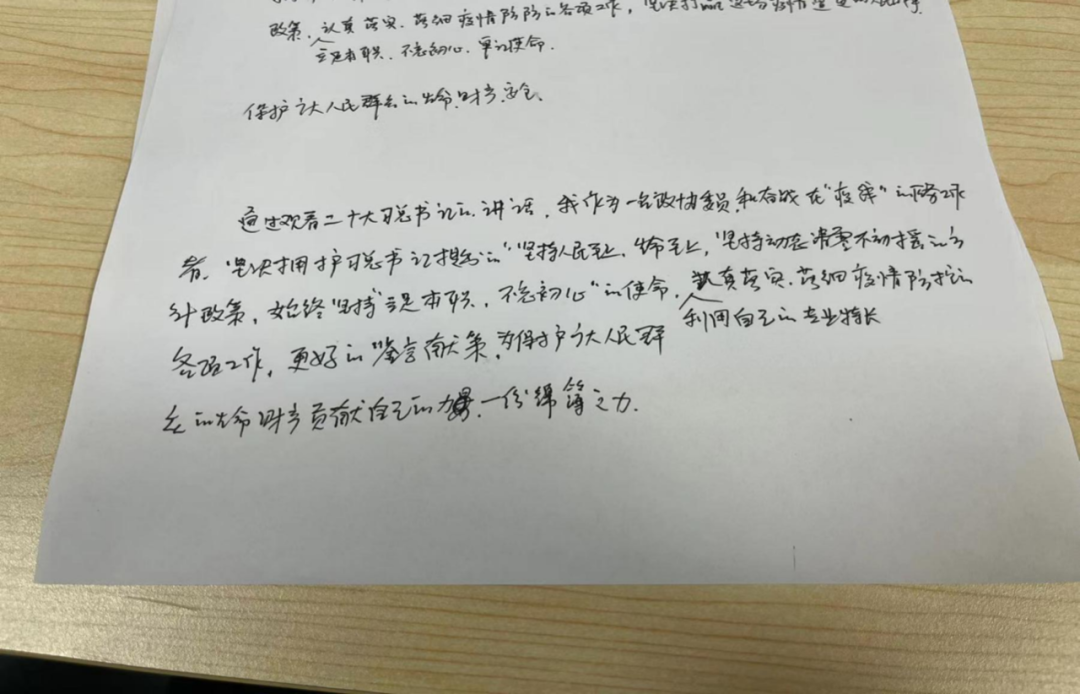 政策，认真落实、落细疫情防防的各项工作，坚决打
立足本职、不忘初心、牢记使命.
保护广大人民群众的生命、财产、安全、
通过观看二十大习总书记的讲话，我作为一名政协委员和奋战在"疫线"的医务工作
者，坚决拥护习总书记提出的"坚持人民至上、生命至上，坚持动态清零不动摇的方
针政策，始终"坚持"立足本职、不忘初心"的使命，认真落实、落细疫情防控的
利用自己的专业特长
各项工作，更好的"鉴言献策，为保护广大人民群
众的生命财产贡献自己的力量、一份绵簿之力.